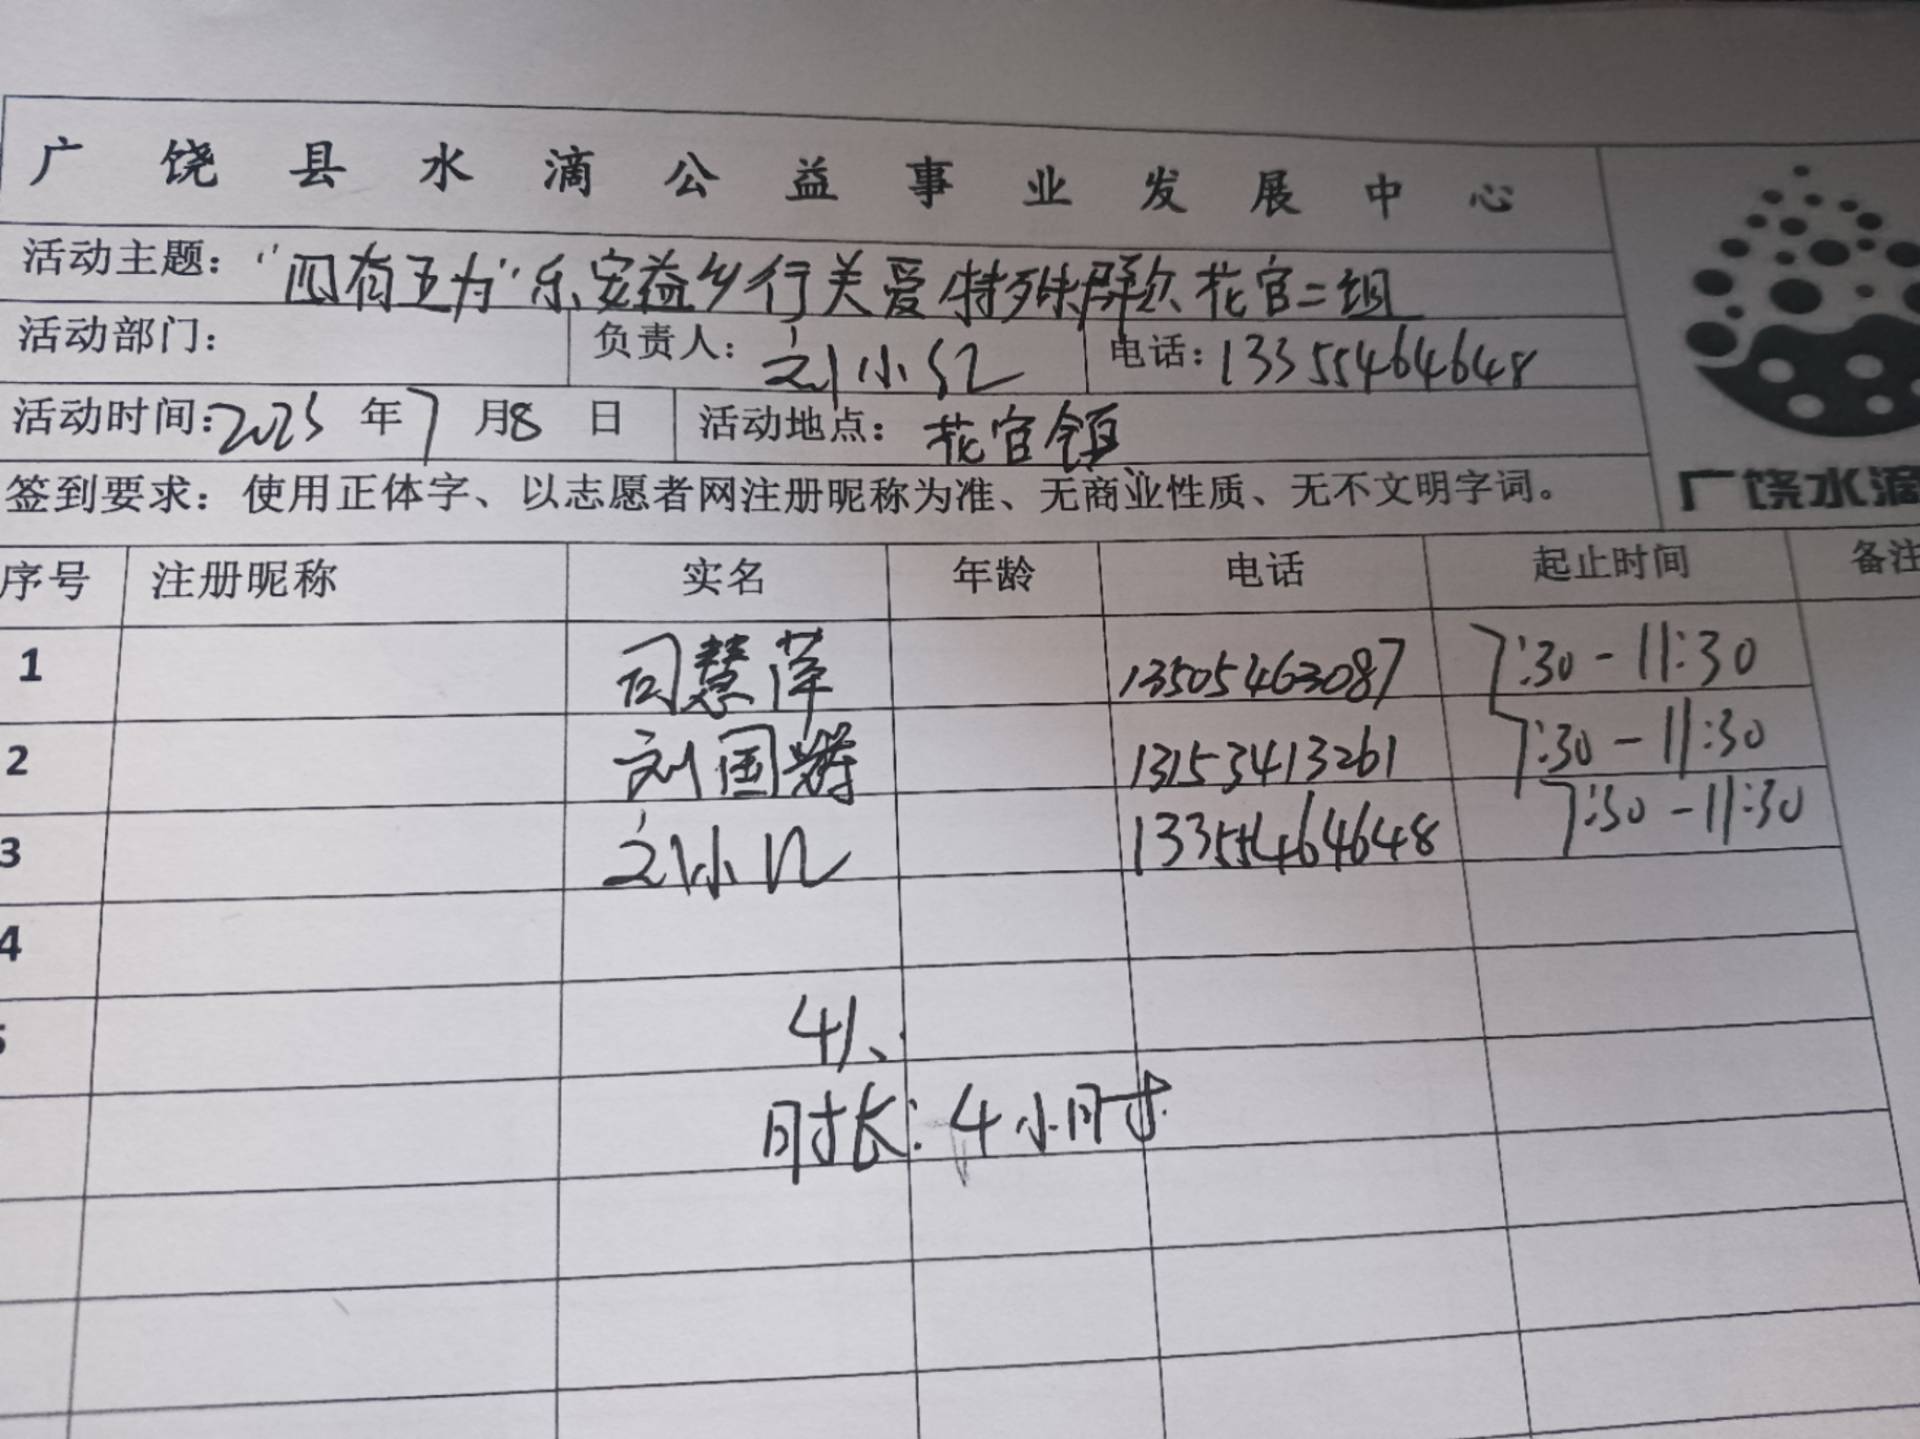 广饶县水滴公益事业发展中心
活动主题：“四有五为”乐安益乡行关爱特殊群众花官二组
活动部门： 负责人：刘小红 电话：13355464648
活动时间：2025 年 7 月 8 日 活动地点：花官镇
签到要求：使用正体字、以志愿者网注册昵称为准、无商业性质、无不文明字词。
广饶水滴
序号 注册昵称 实名 年龄 电话 起止时间 备注
1 司慧萍 13505463087 7:30-11:30
2 刘国 13153413261 7:30-11:30
3 刘小红 13355464648 7:30-11:30
4
5 4人
时长：4小时